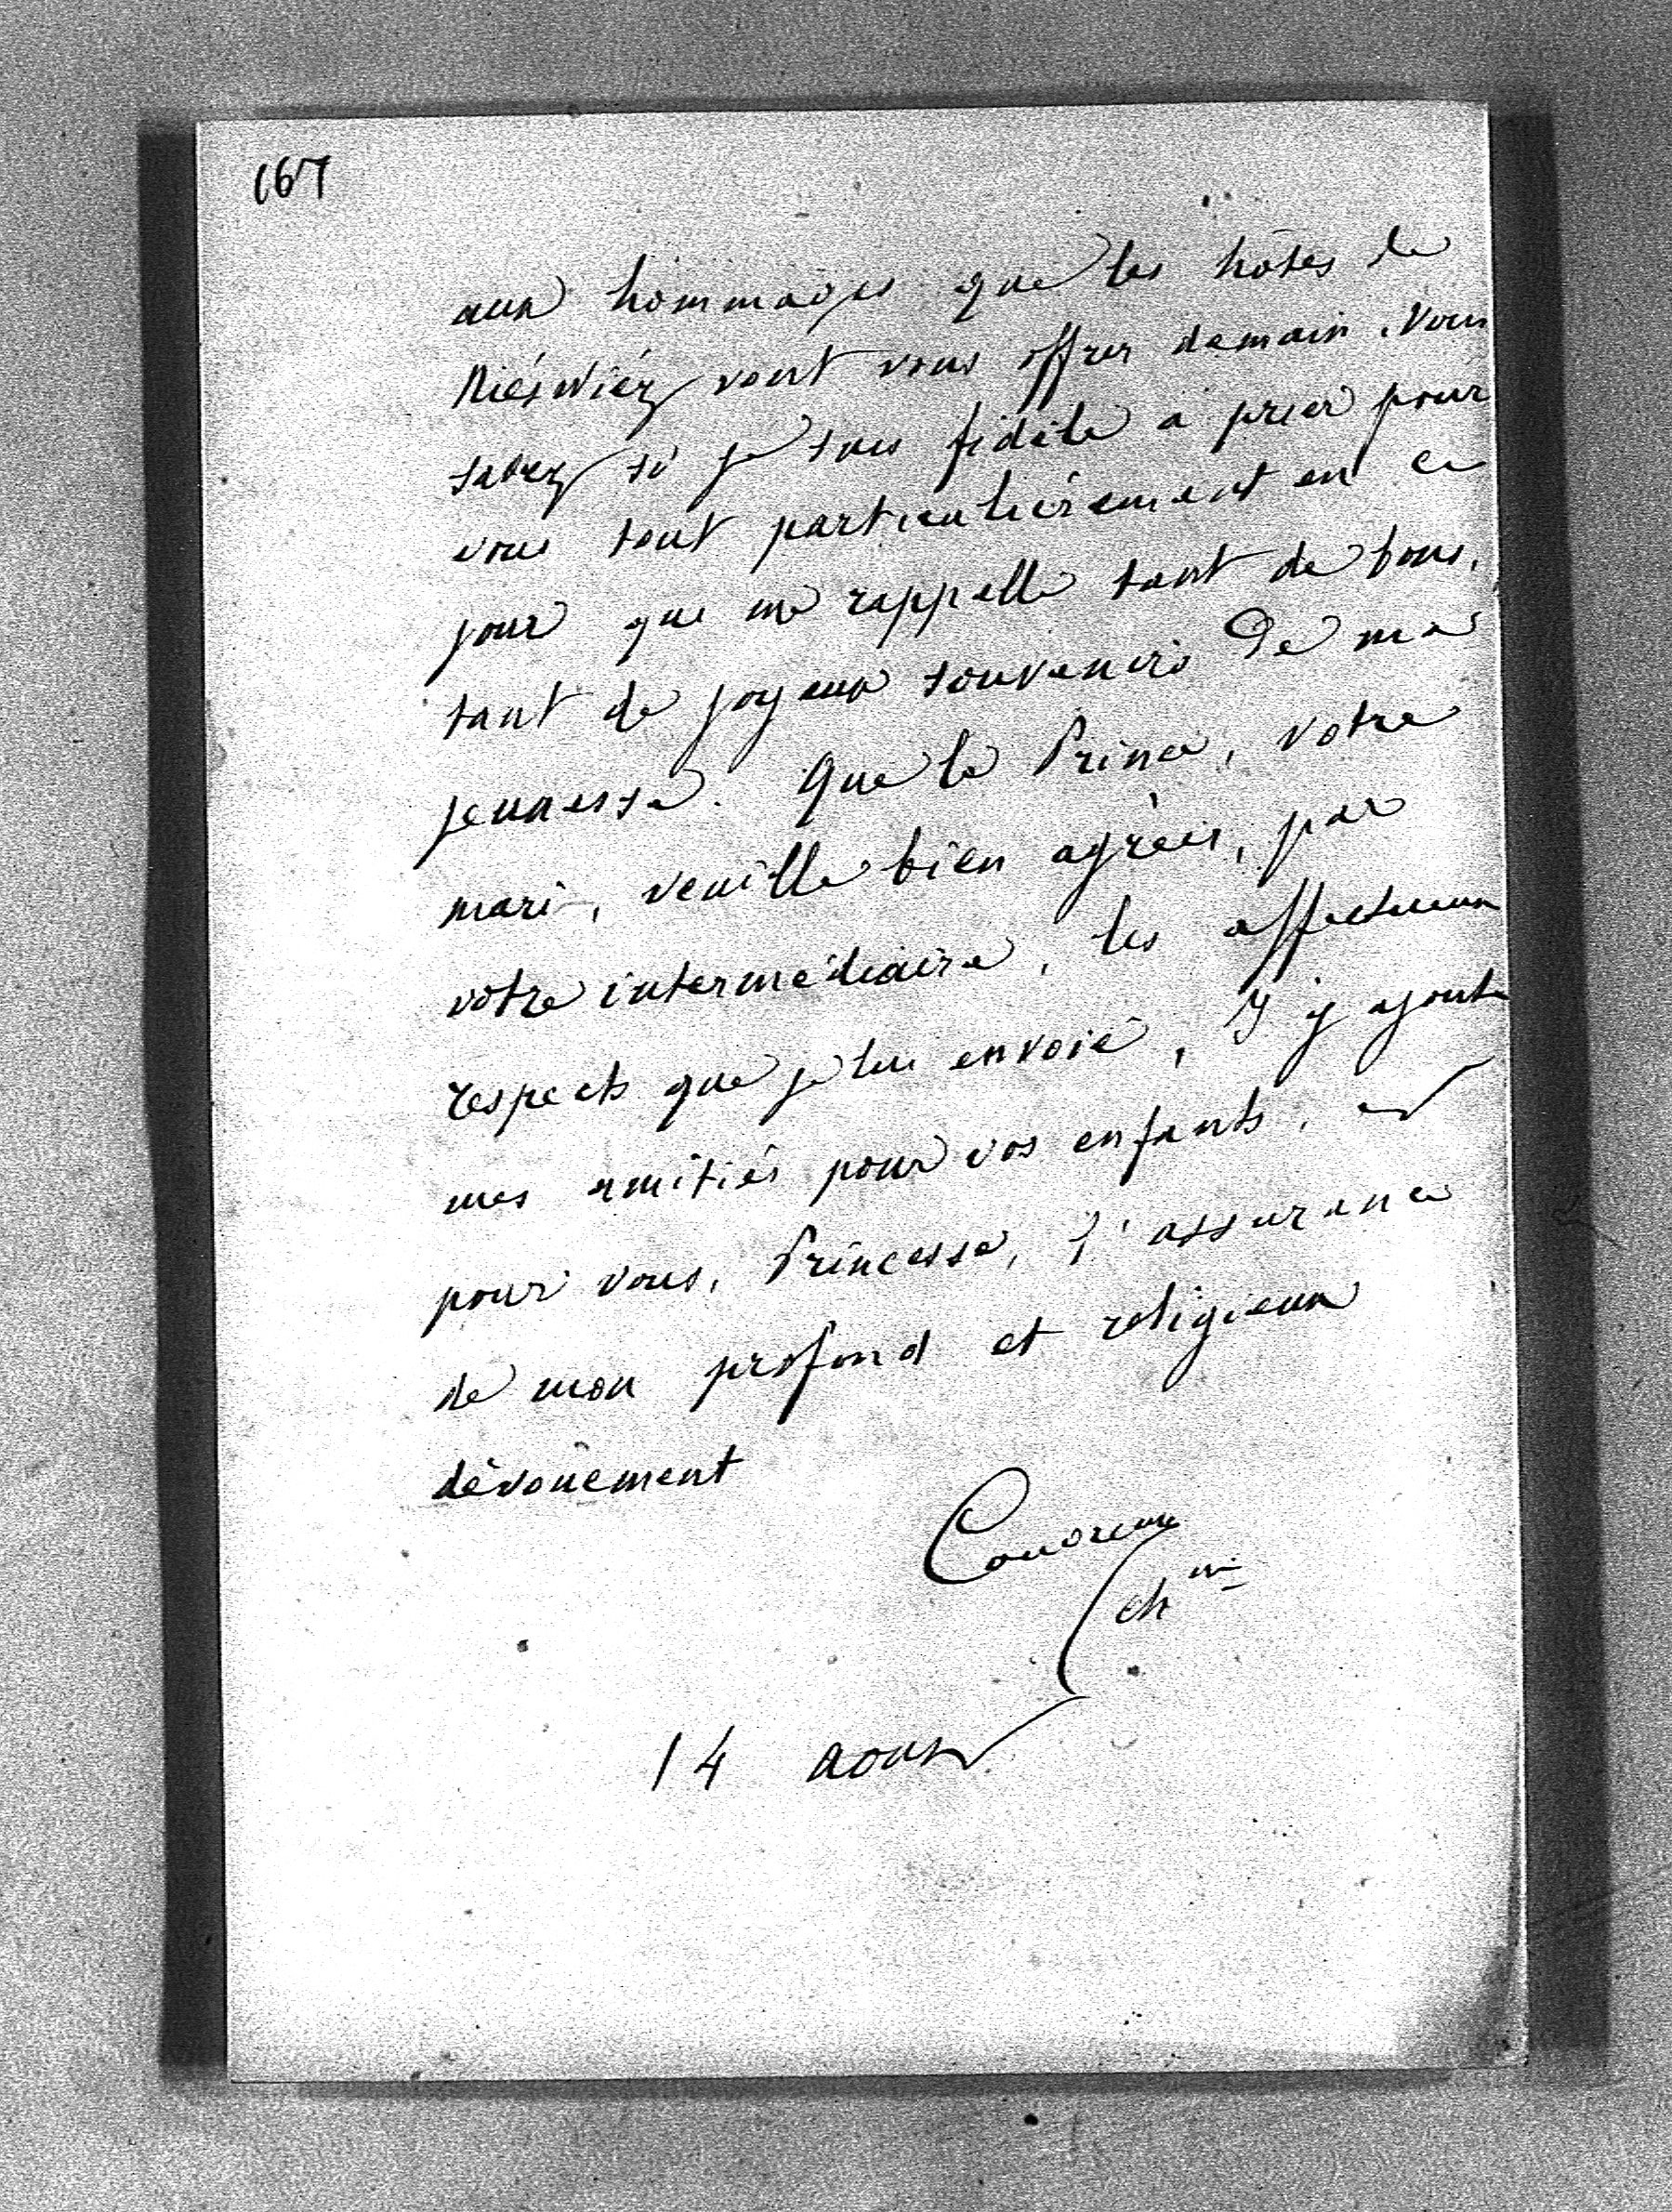 167
aux hommages que les hôtes de
Niéswiéz vont vous offrir demain. Vous
savez si je suis fidèle à prier pour
vous tout particulièrement en ce
jour qui me rappelle tant de bons,
tant de joyeux souvenirs de ma
jeunesse. Que le Prince, votre
mari, veuille bien agréer, par
votre intermédiaire, les affectueux
respects que je lui envoie, J'y ajoute
mes amitiés pour vos enfants, et
pour vous, Princesse, l'assurance
de mon profond et religieux
dévouement
ch
14 aout